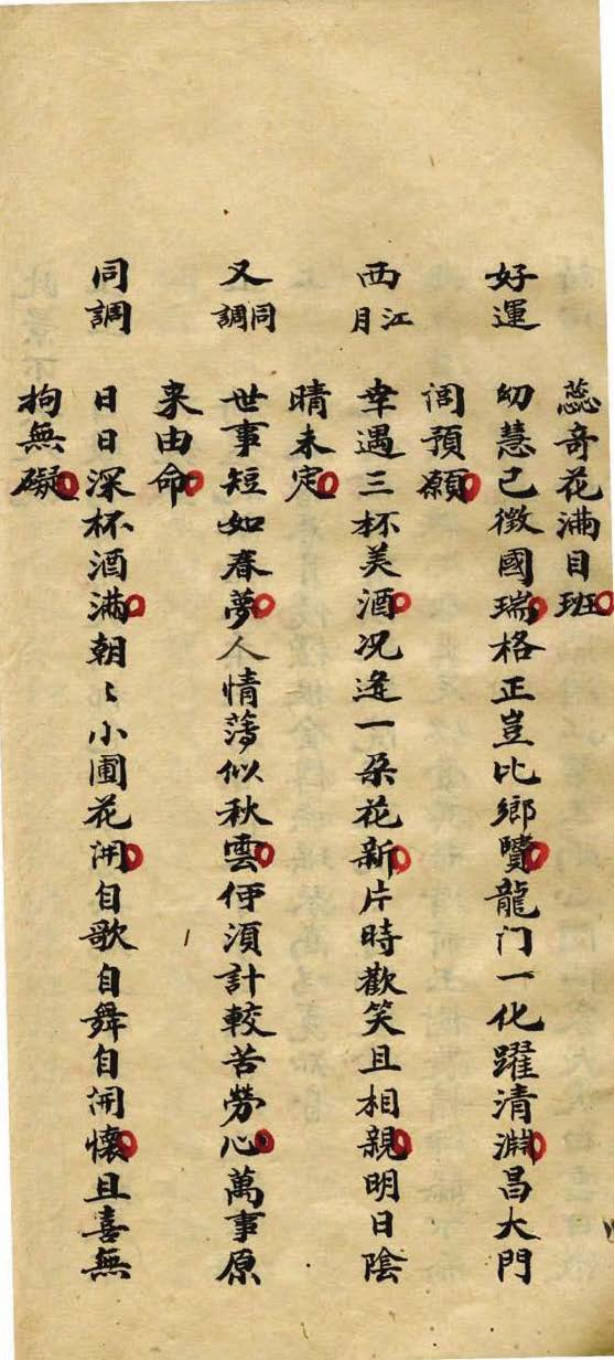 蕊奇花滿目班
好運 幼慧已徵國瑞格正豈比鄉龍门一化躍清淵昌大門
闾預願
西江月 幸遇三杯美酒况逢一朵花新片時歡笑且相親明日陰
晴未定
又同調 世事短如春夢人情薄似秋雲須計較苦勞心萬事原
来由命
同調 日日深杯酒滿朝〻小圃花開自歌自舞自開懷且喜無
拘無礙